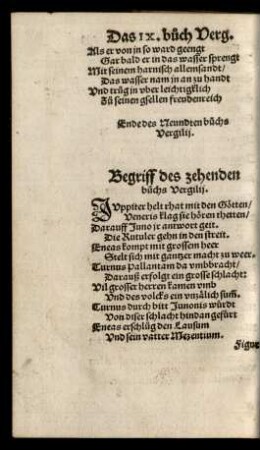 Das IX. bůch Verg.
Als er von in so ward geengt
Gar bald er in das wasser sprengt
Mit seinem harnisch allensandt/
Das wasser nam in an zu handt
Vnd trůg in vber leichtigklich
Zů seinen gsellen freudenreich
Ende des Neundten bůchs
Vergilij.
Begriff des zehenden
bůchs Vergilij.
IVppiter helt rhat mit den Götten/
Veneris klag sie hören thetten/
Darauff Juno jr antwort geit.
Die Rutuler gehn in den streit.
Eneas kompt mit grossem heer
Stelt sich mit gantzer macht zu weer.
Turnus Pallantam da vmbbracht/
Darauß erfolgt ein grosse schlacht:
Vil grosser herren kamen vmb
Vnd des volcks ein vnzälich sum̃.
Turnus durch bitt Junonis würdt
Von diser schlacht hindan gefürt
Eneas erschlůg den Lausum
Vnd sein vatter Mezentium.
Figur